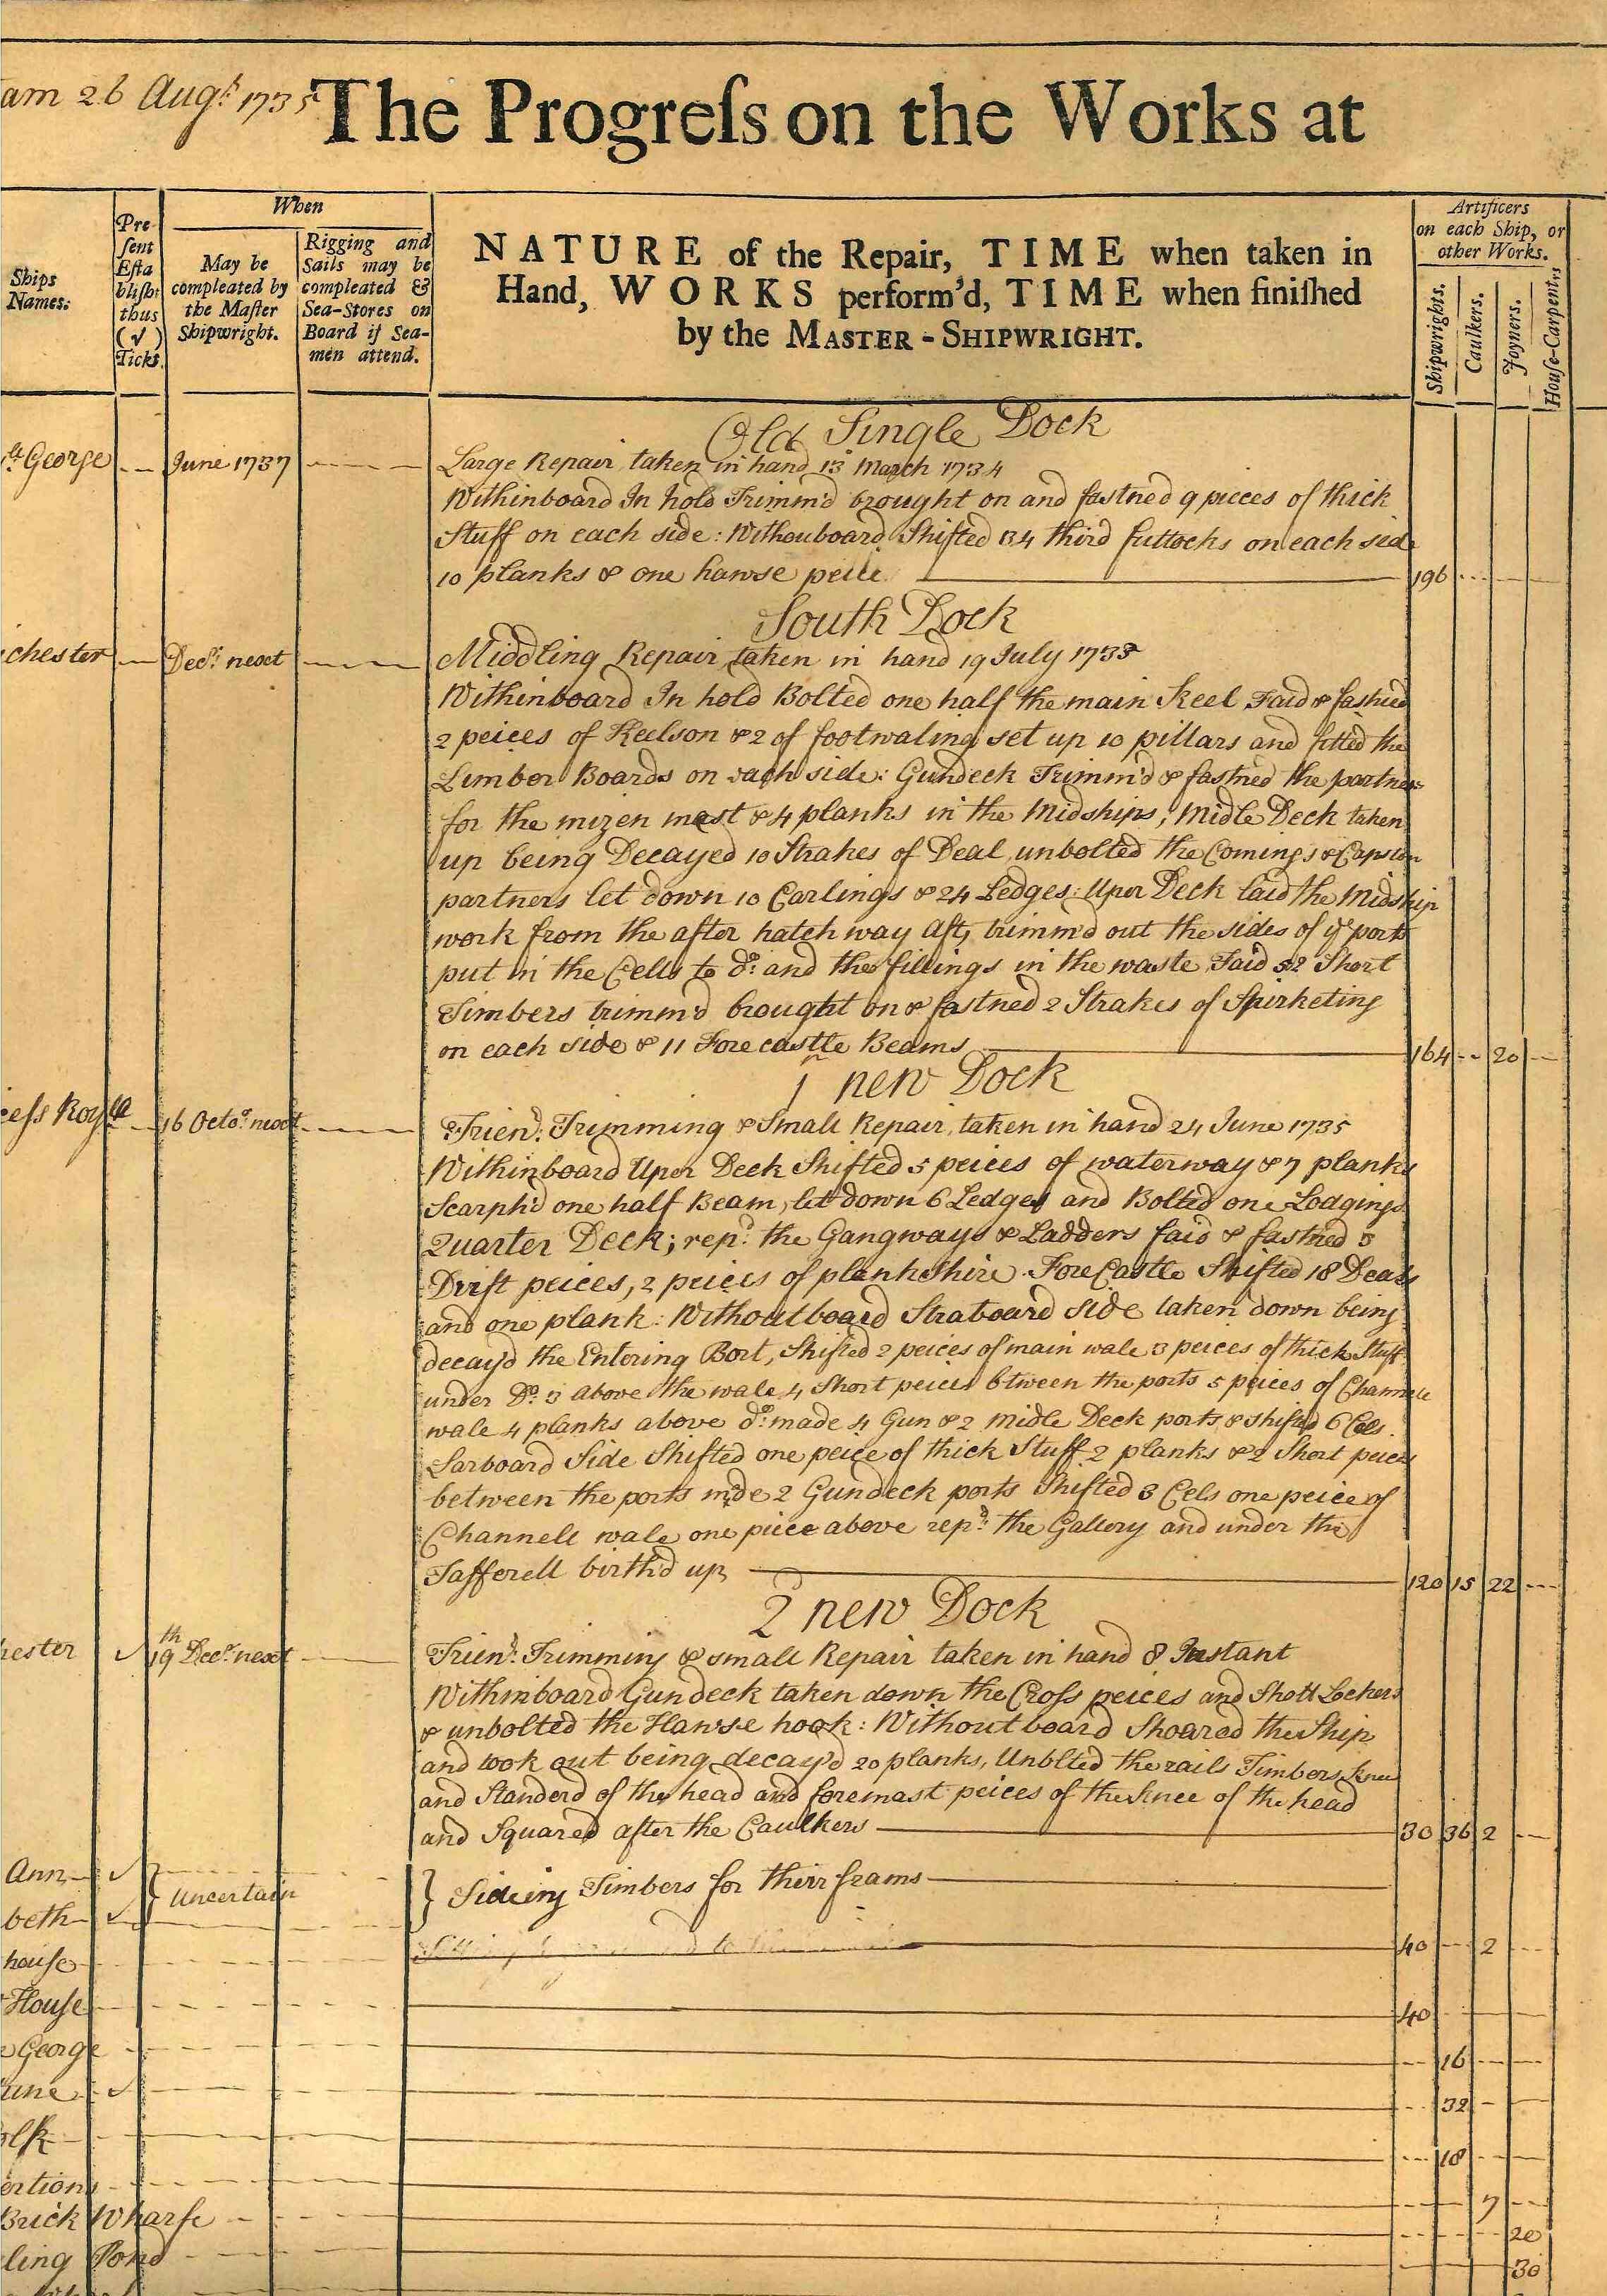 am 26 Augt 1735
The Progreſs on the Works at
Ships Names:
Pre ſent Eſta bliſht thus (√) Ticks.
When
May be compleated by the Maſter Shipwright.
Rigging and Sails may be compleated & Sea-Stores on Board if Sea-men attend.
NATURE of the Repair, TIME when taken in
Hand, WORKS perform'd, TIME when finiſhed
by the MASTER-SHIPWRIGHT.
Artificers
on each Ship, or
other Works.
Shipwrights.
Caulkers.
Joyners.
House-Carpenters
Old Single Dock
St George June 1737 Large Repair taken in hand 13 March 1734
Withinboard In hold Trimm'd brought on and fastned 9 pieces of thick
Stuff on each side: Withouboard Shifted 134 third futtocks on each side
10 planks & one hawse peice 196
South Dock
chester Decr. next Middling Repair taken in hand 19 July 1733
Withinboard In hold Bolted one half the main Keel Faid & fastned
2 peices of Keelson & 2 of footwaling set up 10 pillars and fitted the
Limber Boards on each side: Gundeck Trimm'd & fastned the partners
for the mizen mast & 4 planks in the Midships; Midle Deck taken
up being Decayed 10 Strakes of Deal unbolted the Comings & Capston
partners let down 10 Carlings & 24 Ledges: Uper Deck laid the Midship
work from the after hatch way aft, trimm'd out the sides of ye ports
put in the Cells to do: and the fillings in the waste Faid 52 Short
Timbers trimm'd brought on & fastned 2 Strakes of Spirketing
on each side & 11 Forecastle Beams 164 20
1 new Dock
ceſs Royll 16 Octor next Trien: Trimming & Small Repair, taken in hand 24 June 1735
Withinboard Uper Deck Shifted 5 peices of waterway & 7 planks
Scarph'd one half Beam, let down 6 Ledges and Bolted one Lodging
Quarter Deck; repd: the Gangways & Ladders faid & fastned 3
Drift peices, 2 peices of plankshire. ForeCastle Shifted 18 Deals
and one plank: Withoutboard Straboard Side taken down being
decay'd the Entering Port, Shifted 2 peices of main wale 3 peices of thick Stuff
under Do: 3 above the wale 4 Short peices btween the ports 5 peices of Channell
wale 4 planks above do: made 4 Gun & 2 midle Deck ports & shifted 6 Cells.
Larboard Side Shifted one peice of thick Stuff 2 planks & 2 Short peices
between the ports made 2 Gundeck ports Shifted 3 Cels one peice of
Channell wale one piece above repd: the Gallery and under the
Tafferell birth'd up 120 15 22
2 new Dock
hester √ 19th Decr. next Trien: Trimming & small Repair taken in hand 8 Instant
Withinboard Gundeck taken down the Croſs peices and Shott Lockers
& unbolted the Hawse hook: Without board Shoared the Ship
and took out being decay'd 20 planks, Unblted the rails Timbers, knees
and Standerd of the head and foremast peices of the knee of the head
and Squared after the Caulkers 30 36 2
Ann √
beth √ } Uncertain } Sideing Timbers for their frams
house 40 2
House 40
George 16
une √ 32
olk 18
ertions 7
Brick Wharfe 20
ling Pond 30